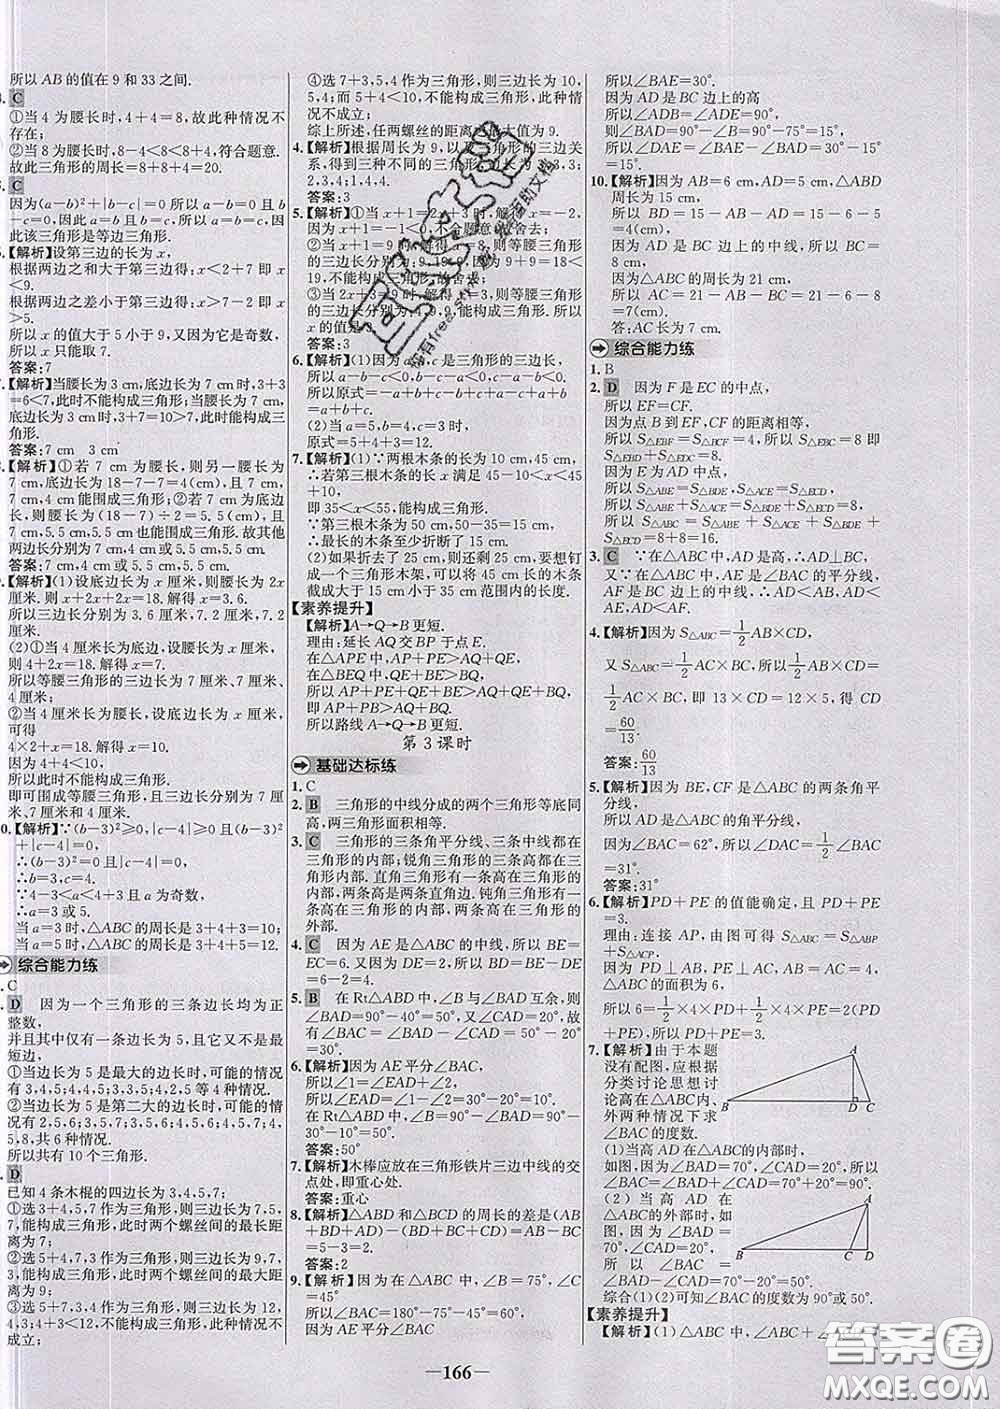 所以 AB 的值在 9 和 33 之间.
C
①当 4 为腰长时,4+4=8,故此种情况不
存在;
②当 8 为腰长时,8-4<8<8+4,符合题意.
故此三角形的周长=8+8+4=20.
C
因为(a-b)²+|b-c|=0 所以 a-b=0 且 b
-c=0,因此 a=b 且 b=c,所以 a=b=c,因
此该三角形是等边三角形.
【解析】设第三边的长为 x,
根据两边之和大于第三边得:x<2+7 即 x
<9.
根据两边之差小于第三边得:x>7-2 即 x
>5.
所以 x 的值大于 5 小于 9,又因为它是奇数,
所以 x 只能取 7.
答案:7
【解析】当腰长为 3 cm,底边长为 7 cm时,3+3
=6<7,此时不能构成三角形;当腰长为 7 cm,
底边长为 3 cm时,3+7=10>7,此时能构成三
角形.
答案:7 cm 3 cm
【解析】①若 7 cm 为腰长,则另一腰长为
7 cm,底边长为 18-7-7=4(cm),且 4,7,
7 cm,能围成三角形;②若 7 cm 为底边长,
则腰长为(18-7)÷2=5.5(cm),且 7,5.5,
5.5 cm,5.5 cm也能围成三角形.故其他
两边长分别为 7 cm,4 cm或 5.5 cm,5.5 cm.
答案:7 cm,4 cm 或 5.5 cm,5.5 cm
【解析】(1)设底边长为 x 厘米,则腰长为 2x
厘米.则 x+2x+2x=18. 解得 x=3.6.
所以三边长分别为 3.6 厘米,7.2 厘米,7.2
厘米.
(2)①当 4 厘米长为底边,设腰长为 x 厘米,
则 4+2x=18. 解得 x=7.
所以等腰三角形的三边长为 7 厘米、7 厘米、
4 厘米;
②当 4 厘米长为腰长,设底边长为 x 厘米,
可得
4×2+x=18. 解得 x=10.
因为 4+4<10,
所以此时不能构成三角形.
即可围成等腰三角形,且三边长分别为 7 厘
米、7 厘米和 4 厘米.
0.【解析】∵(b-3)²≥0,|c-4|≥0 且(b-3)²
+|c-4|=0,
∴(b-3)²=0 且|c-4|=0,
∴b=3,c=4.
∵4-3<a<4+3 且 a 为奇数,
∴a=3 或 5.
当 a=3 时,△ABC 的周长是 3+4+3=10;
当 a=5 时,△ABC 的周长是 3+4+5=12.
综合能力练
C
D 因为一个三角形的三条边长均为正
整数,
并且其中仅有一条边长为 5,且它又不是最
短边,
①当边长为 5 是最大的边长时,可能的情况
有 3,4,5;4,4,5;3,3,5;4,2,5 等 4 种情况.
②当边长为 5 是第二大的边长时,可能的情
况有 2,5,6;3,5,7;3,5,6;4,5,6;4,5,7;4,
5,8,共 6 种情况.
所以共有 10 个三角形.
D
已知 4 条木棍的四边长为 3,4,5,7;
①选 3+4,5,7 作为三角形,则三边长为 7,5,
7,能构成三角形,此时两个螺丝间的最长距
离为 7;
②选 5+4,7,3 作为三角形,则三边长为 9,7,
3,能构成三角形,此时两个螺丝间的最大距
离为 9;
③选 5+7,3,4 作为三角形,则三边长为 12,
4,3;4+3<12,不能构成三角形,此种情况不
成立;
④选 7+3,5,4 作为三角形,则三边长为 10,
5,4;而 5+4<10,不能构成三角形,此种情况
不成立;
综上所述,任两螺丝的距离的最大值为 9.
4.【解析】根据周长为 9,以及三角形的三边关
系,得到三种不同的三角形,边长为 3,3,3;
2,3,4;1,4,4.
答案:3
5.【解析】①当 x+1=2x+3 时,解得 x=-2,
因为 x+1=-1<0,不合题意,故舍去;
②当 x+1=9 时,解得 x=8,则等腰三角形的
三边长分别为:9,19,9,因为 9+9=18<
19,不能构成三角形,故舍去;
③当 2x+3=9 时,解得 x=3,则等腰三角形的
三边长分别为:4,9,9,能构成三角形.所以
x 的值是 3.
答案:3
6.【解析】(1)因为 a,b,c 是三角形的三边长,
所以 a-b-c<0,b-c-a<0,c-a-b<0,
所以原式=-a+b+c-b+c+a-c+a+b
=a+b+c.
(2)当 a=5,b=4,c=3 时,
原式=5+4+3=12.
7.【解析】(1)∵两根木条的长为 10 cm,45 cm,
∴若第三根木条的长 x 满足 45-10<x<45
+10,
即 35<x<55,能构成三角形.
∵第三根木条为 50 cm,50-35=15 cm,
∴最长的木条至少折断了 15 cm.
(2)如果折去了 25 cm,则还剩 25 cm,要想钉
成一个三角形木架,可以将 45 cm 长的木条
截成大于 15 cm 小于 35 cm 范围内的长度.
【素养提升】
【解析】A→Q→B 更短.
理由:延长 AQ 交 BP 于点 E.
在△APE 中,AP+PE>AQ+QE,
在△BEQ 中,QE+BE>BQ,
所以 AP+PE+QE+BE>AQ+QE+BQ,
即 AP+PB>AQ+BQ.
所以路线 A→Q→B 更短.
第 3 课时
基础达标练
1. C
2. B 三角形的中线分成的两个三角形等底同
高,两三角形面积相等.
3. C 三角形的三条角平分线、三条中线都在
三角形的内部;锐角三角形的三条高都在三
角形的内部.直角三角形有一条高在三角形的
内部,两条高是两条直角边.钝角三角形有一
条高在三角形的内部,两条高在三角形的
外部.
4. C 因为 AE 是△ABC 的中线,所以 BE=
EC=6. 又因为 DE=2,所以 BD=BE-DE
=6-2=4.
5. B 在 Rt△ABD 中,∠B 与∠BAD 互余,则
∠BAD=90°-40°=50°,又∠CAD=20°,故
有∠BAC=∠BAD-∠CAD=50°-20°
=30°.
6.【解析】因为 AE 平分∠BAC,
所以∠1=∠EAD+∠2,
所以∠EAD=∠1-∠2=30°-20°=10°,
在 Rt△ABD 中,∠B=90°-∠BAD=90°-
30°-10°=50°.
答案:50°
7.【解析】木棒应放在三角形铁片三边中线的交
点处,即重心处.
答案:重心
8.【解析】△ABD 和△BCD 的周长的差是(AB
+BD+AD)-(BD+BC+CD)=AB-BC
=5-3=2.
答案:2
9.【解析】因为在△ABC 中,∠B=75°,∠C
=45°
所以∠BAC=180°-75°-45°=60°,
因为 AE平分∠BAC
所以∠BAE=30°.
因为 AD 是 BC 边上的高
所以∠ADB=∠ADE=90°,
则∠BAD=90°-∠B=90°-75°=15°,
所以∠DAE=∠BAE-∠BAD=30°-15°
=15°.
10.【解析】因为 AB=6 cm,AD=5 cm,△ABD
周长为 15 cm,
所以 BD=15-AB-AD=15-6-5
=4(cm),
因为 AD 是 BC 边上的中线,所以 BC=
8 cm.
因为△ABC 的周长为 21 cm,
所以 AC=21-AB-BC=21-6-8=
7(cm).
答:AC 长为 7 cm.
综合能力练
1. B
2. D 因为 F 是 EC 的中点,
所以 EF=CF.
因为点 B 到 EF,CF 的距离相等,
所以 S△EBF=S△BCF=4,所以 S△EBC=8 即
S△EBD+S△EDC=8.
因为 E 为 AD 中点,
所以 S△ABE=S△BDE,S△ACE=S△ECD,
所以 S△ABE+S△ACE=S△BDE+S△ECD=8,
所以 S△ABC=S△ABE+S△ACE+S△BDE+
S△ECD=8+8=16.
3. C ∵在△ABC 中,AD 是高,∴AD⊥BC,
又∵在△ABC 中,AE 是∠BAC 的平分线,
AF 是 BC 边上的中线,∴AD<AE,AD<AB,
AD<AC,AD<AF.
4.【解析】因为 S△ABC=1/2 AB×CD,
又 S△ABC=1/2 AC×BC,所以 1/2 AB×CD=
1/2 AC×BC,即 13×CD=12×5,得 CD
=60/13.
答案:60/13
5.【解析】因为 BE,CF 是△ABC 的两条角平
分线,
所以 AD 是△ABC 的角平分线,
因为∠BAC=62°,所以∠DAC=1/2∠BAC
=31°.
答案:31°
6.【解析】PD+PE 的值能确定,且 PD+PE
=3.
理由:连接 AP,由图可得 S△ABC=S△ABP
+S△ACP,
因为 PD⊥AB,PE⊥AC,AB=AC=4,
△ABC 的面积为 6,
所以 6=1/2×4×PD+1/2×4×PE=2(PD
+PE),所以 PD+PE=3.
7.【解析】由于本题
没有配图,应根据
分类讨论思想讨
论高在△ABC的内、
外两种情况下求
∠BAC的度数.
A
B
D
C
(1)当高 AD 在△ABC的内部时,
如图,因为∠BAD=70°,∠CAD=20°,
所以∠BAC=∠BAD+∠CAD=70°+20°
=90°.
(2)当高 AD 在
△ABC的外部时,如
图,因为∠BAD=
70°,∠CAD=20°,
A
B
C
D
所以∠BAC=∠BAD-∠CAD=70°-20°
=50°.
综合(1)(2)可知∠BAC 的度数为 90°或 50°.
【素养提升】
【解析】(1)△ABC 中,∠ABC+∠ACB+
—166—
答案圈
MXQE.COM